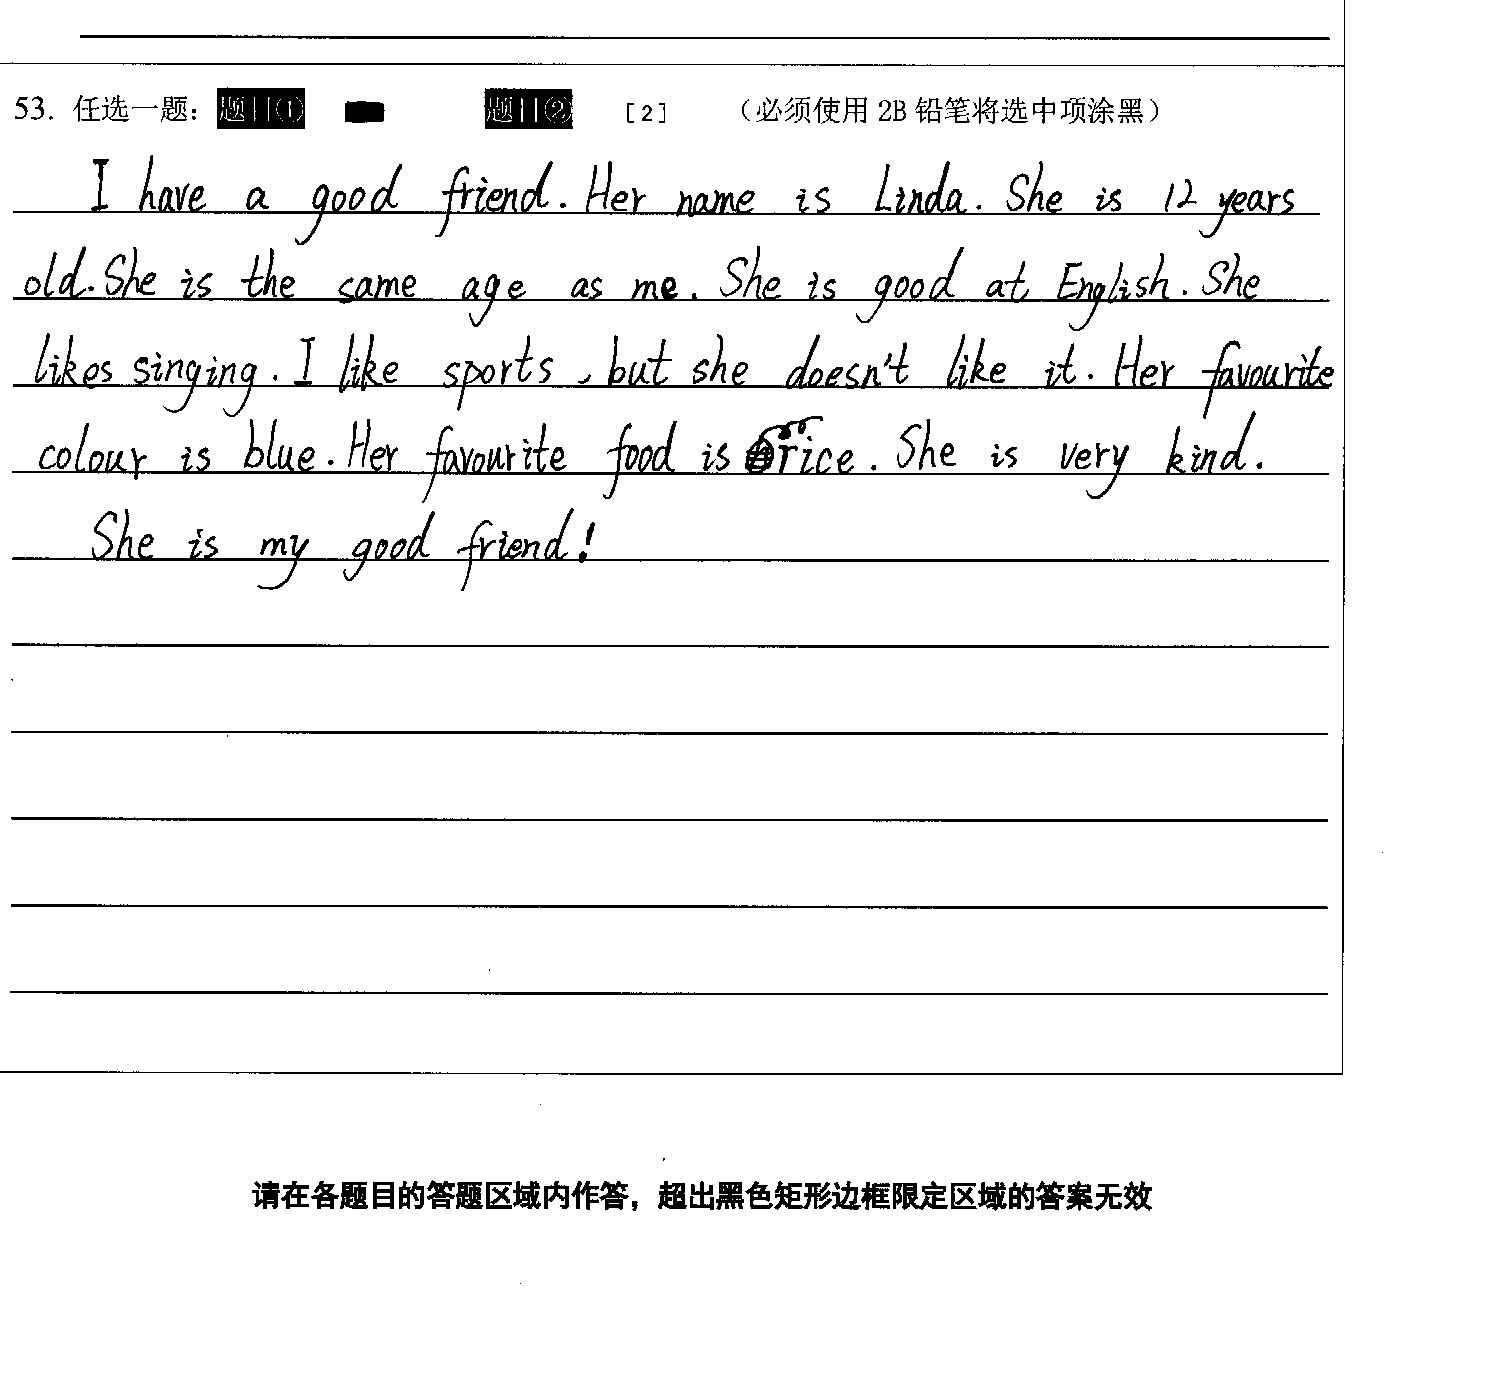 53. 任选一题: 题目① 题目② [2] (必须使用 2B 铅笔将选中项涂黑)
I have a good friend. Her name is Linda. She is 12 years
old. She is the same age as me. She is good at English. She
likes singing. I like sports, but she doesn't like it. Her favourite
colour is blue. Her favourite food is rice. She is very kind.
She is my good friend!
请在各题目的答题区域内作答，超出黑色矩形边框限定区域的答案无效